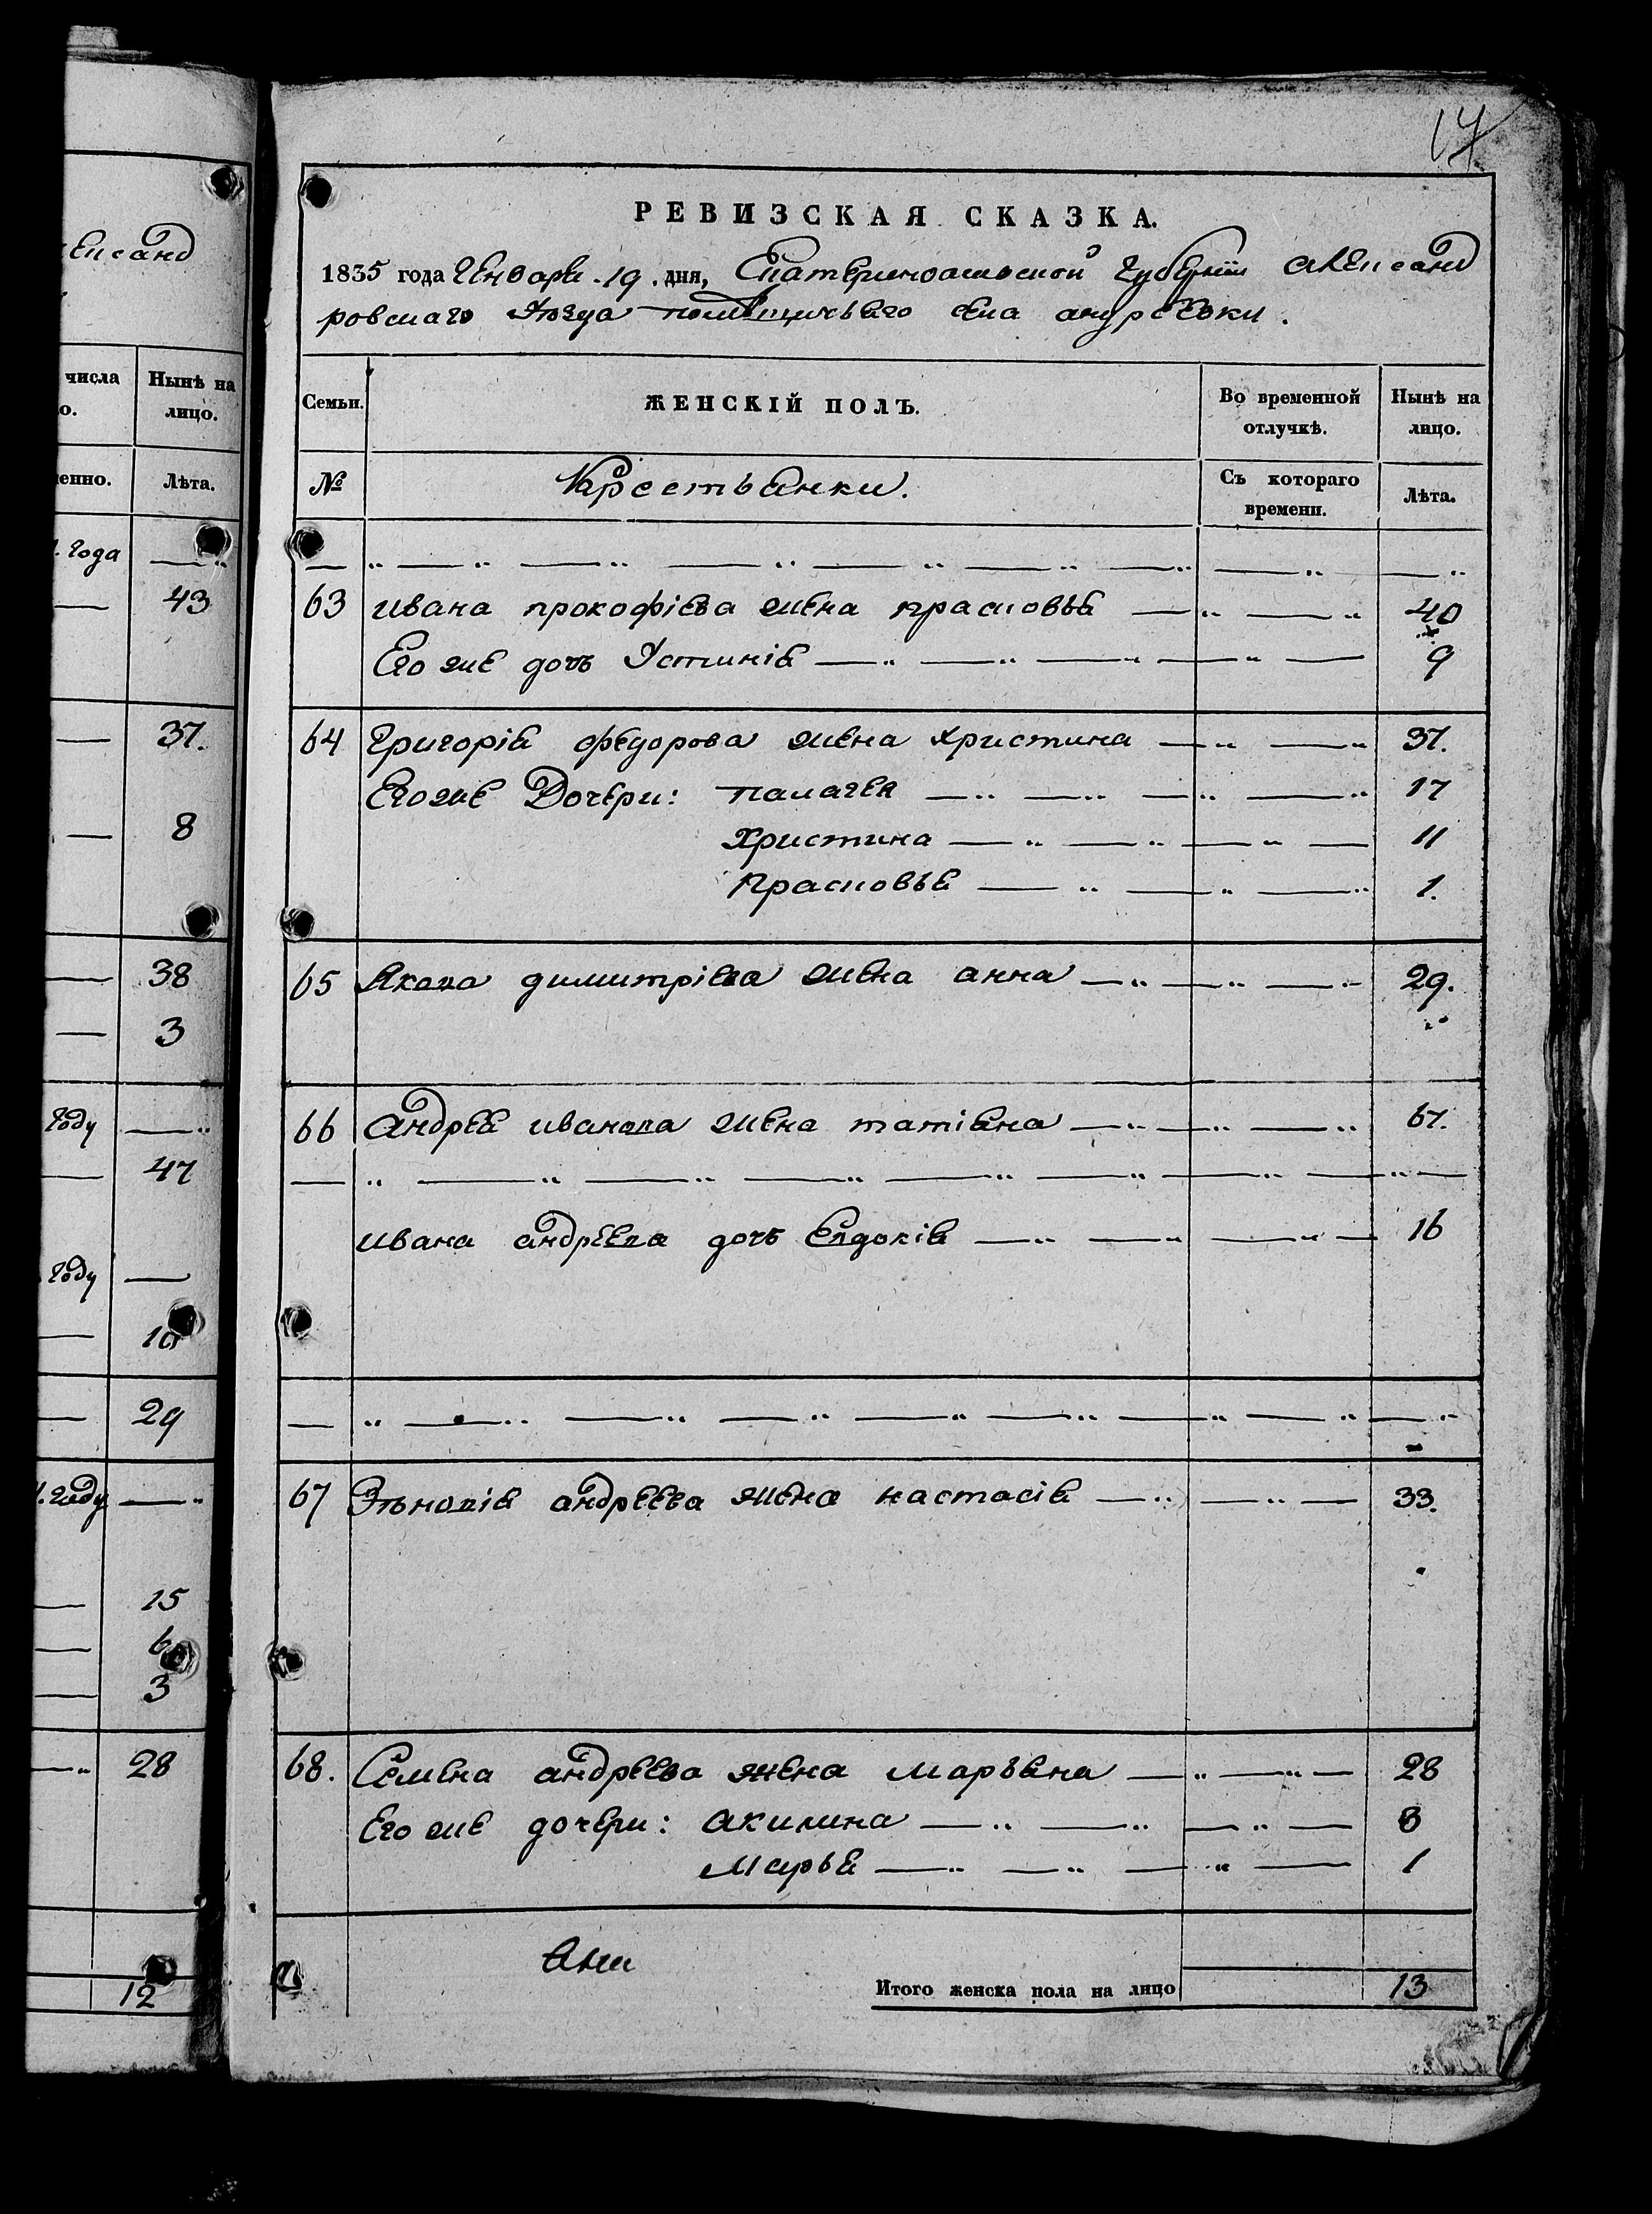 ксанд
числа
о.
Нынѣ на
лицо.
енно.
Лѣта.
года
43
37.
8
38
3
году
47
году
10
29
году
15
6
3
28
12
17
РЕВИЗСКАЯ СКАЗКА.
1835 года Генваря 19 дня, Екатеринославской Губерніи Александ
ровскаго Уѣзда помѣщичьяго села андреевки.
Семьи.
ЖЕНСКІЙ ПОЛЪ.
Во временной
отлучкѣ.
Нынѣ на
лицо.
№
Крестьянки.
Съ котораго
времени.
Лѣта.
63 ивана прокофіева жена прасковья 40
Его же дочь Устинія 9
64 Григорія федорова жена христина 37.
Его же Дочери: палагея 17
христина 11
прасковья 1.
65 Якова димитріева жена анна 29.
66 андрея иванова жена татіяна 67.
ивана андреева дочь Евдокія 16
67 Зѣновія андреева жена настасія 33.
68. Семена андреева жена марьяна 28
Его же дочери: акилина 3
марья 1
Итого женска пола на лицо 13